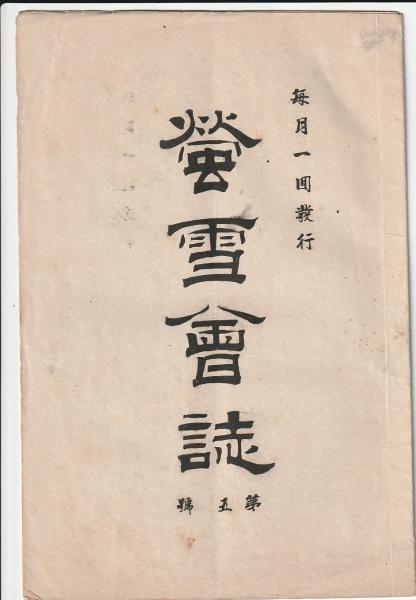 每月一回發行
螢雪會誌
第五號